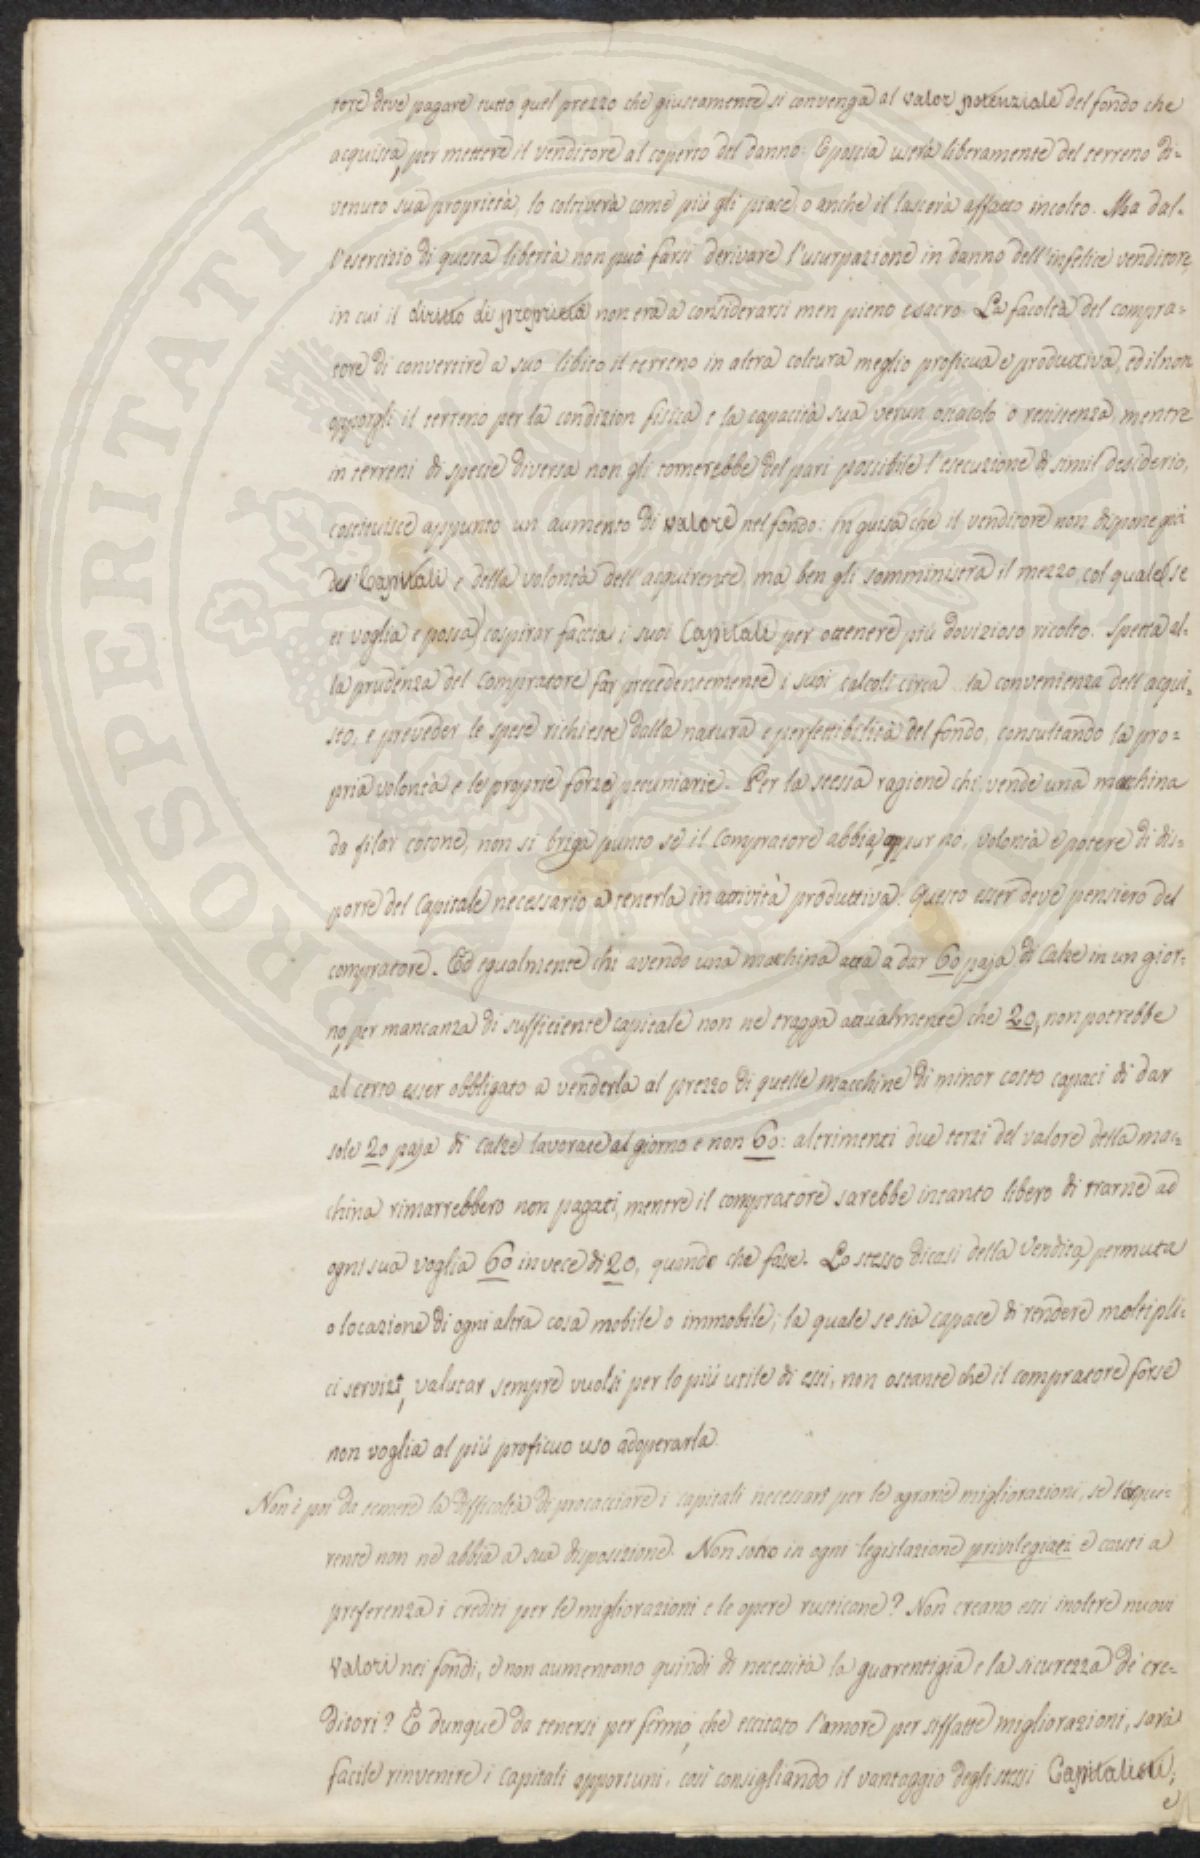 tore deve pagare tutto quel prezzo che giustamente si convenga al valor potenziale del fondo che
acquista, per mettere il venditore al coperto del danno. Eposcia userà liberamente del terreno di=
venuto sua proprietà, lo coltiverà come più gli piace, o anche il lascerà affatto incolto. Ma dal=
l'esercizio di questa libertà non può farsi derivare l'usurpazione in danno dell'infelice venditore,
in cui il diritto di proprietà non era a considerarsi men pieno e sacro. La facoltà del compra=
tore di convertire a suo libito il terreno in altra coltura meglio proficua e produttiva, ed il non
opporgli il terreno per la condizion fisica e la capacità sua verun ostacolo o resistenza, mentre
in terreni di specie diversa non gli tornerebbe del pari possibile l'esecuzione di simil desiderio,
costituisce appunto un aumento di valore nel fondo: in guisa che il venditore non dispone già
de' Capitali e della volontà dell'acquirente, ma ben gli somministra il mezzo, col quale (se
ei voglia e possa) cospirar faccia i suoi Capitali per ottenere più dovizioso ricolto. Spetta al=
la prudenza del Compratore far precedentemente i suoi calcoli circa la convenienza dell'acqui=
sto, e preveder le spese richieste dalla natura e perfettibilità del fondo, consultando la pro=
pria volontà e le proprie forze pecuniarie. Per la stessa ragione chi vende una macchina
da filar cotone, non si briga punto se il Compratore abbia, oppur nò, volontà e potere di dis=
porre del Capitale necessario a tenerla in attività produttiva: Questo esser deve pensiero del
compratore. Ed egualmente chi avendo una macchina atta a dar 60 paja di Calze in un gior=
no, per mancanza di sufficiente capitale non ne tragga attualmente che 20, non potrebbe
al certo esser obbligato a venderla al prezzo di quelle macchine di minor costo capaci di dar
sole 20 paja di Calze lavorate al giorno e non 60: altrimenti due terzi del valore della mac=
china rimarrebbero non pagati, mentre il compratore sarebbe intanto libero di trarne ad
ogni sua voglia 60 invece di 20, quando che fosse. Lo stesso dicasi della Vendita, permuta
o locazione di ogni altra cosa mobile o immobile; la quale se sia capace di rendere moltipli=
ci servizi, valutar sempre vuolsi per lo più utile di essi, non ostante che il compratore forse
non voglia al più proficuo uso adoperarla.
Non è poi da temere la difficoltà di procacciare i capitali necessarî per le agrarie migliorazioni, se l'acqui=
rente non ne abbia a sua disposizione. Non sono in ogni legislazione privilegiati e cauti a
preferenza i crediti per le migliorazioni e le opere rusticane? Non creano essi inoltre nuovi
Valori nei fondi, e non aumentano quindi di necessità la guarentigia e la sicurezza de' cre=
ditori? È dunque da tenersi per fermo, che eccitato l'amore per siffatte migliorazioni, sarà
facile rinvenire i Capitali opportuni, così consigliando il vantaggio degli stessi Capitalisti;
e
PROSPERITATI PUBLICAE AUGENDAE